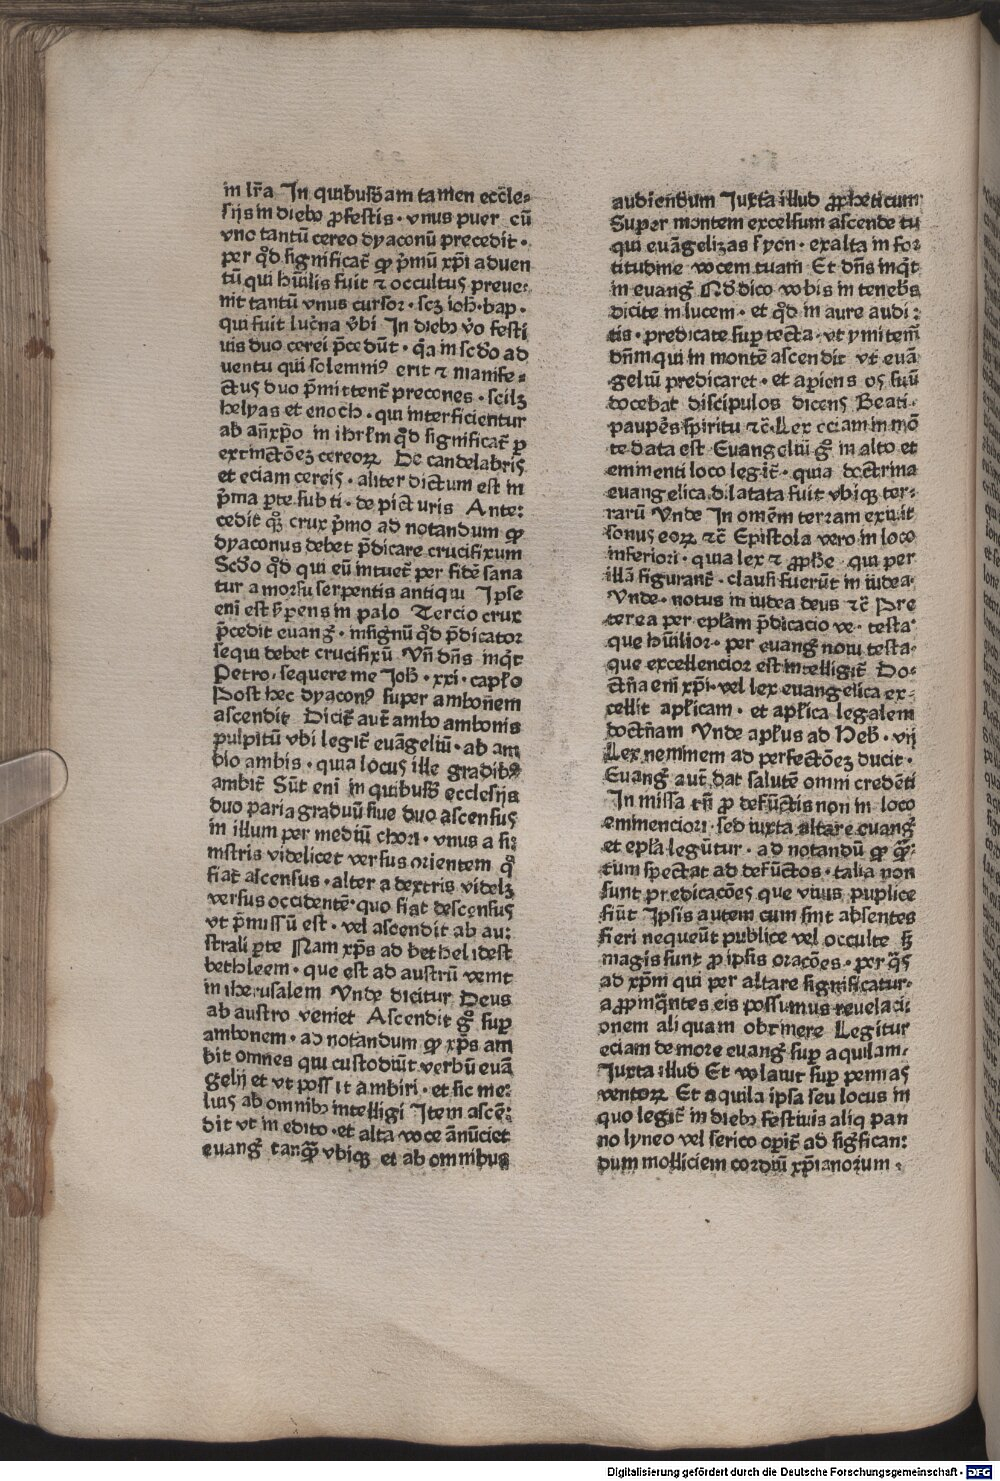 in lr̄a In quibusdam tamen eccle⸗
sijs in dieb₉ ꝓfestis · vnus puer cū
vno tantū cereo dyaconū precedit ·
per qd̄ significat̄ ꝙ p̄mū xp̄i aduen
tū qui hūilis fuit ⁊ occultus preue⸗
nit tantū vnus cursor · scꝫ ioh̄·bap ·
qui fuit luc̄na v̄bi In dieb₉ v̄o festi
uis duo cerei p̄cedūt · q̄a in sc̄do ad
uentu qui solemniꝰ erit ⁊ manife⸗
ctus duo p̄mittent̄ precones · scilꝫ
helyas et enoch · qui interficientur
ab an̄xp̄o in ihrlm̄ qd̄ significat̄ ꝑ
extinctōeꝫ cereoꝝ De candelabris
et eciam cereis · aliter dictum est in
p̄ma ꝑte sub ti · de picturis Ante⸗
cedit qꝫ crux p̄mo ad notandum ꝙ
dyaconus debet p̄dicare crucifixum
Scd̄o qd̄ qui eū intuet̄ per fidē sana
tur a morsu serpentis antiqui Ipse
eni̅ est s̄pens in palo Tercio crux
p̄cedit euang̅ · in signū qd̄ p̄dicator
sequi debet crucifixū Vn̄ dn̄s inq̄t
Petro · sequere me Joh̄ · xxi · capl̄o
Post hec dyaconꝰ super ambonem
ascendit Dicit̄ aut̄ ambo ambonis
pulpitū vbi legit̄ euāgeliū · ab am
bio ambis · quia locus ille gradib₉
ambit̄ Sūt eni̅ in quibusd̄ ecclesijs
duo paria graduū siue duo ascensus
in illum per mediū chori · vnus a si⸗
nistris videlicet versus orientem q̄
fiat ascensus · alter a dextris videlꝫ
versus occidentē · quo fiat descensus
vt p̄missū est · vel ascendit ab au⸗
strali ꝑte Nam xp̄s ad bethel idest
bethleem · que est ad austrū venit
in iherusalem Vnde dicitur Deus
ab austro veniet Ascendit g° suꝑ
ambonem · ad notandum ꝙ xp̄s am
bit omnes qui custodiūt verbū euā
gelij et vt possit ambiri · et sic me⸗
lius ab omnib₉ intelligi Item ascē⸗
dit vt in edito · et alta voce ānūciet
euang̅ tanqȝ vbiqȝ et ab omnibus
audiendum Juxta illud ꝓpheticum
Super montem excelsum ascende tu
qui euāgelizas syon · exalta in for
titudine vocem tuam Et dn̄s inq̄t
in euang̅ Qd̄ dico vobis in teneb̄s
dicite in lucem · et qd̄ in aure audi⸗
tis · predicate suꝑ tecta · vt ymitem̄
dn̄m qui in montē ascendit vt euā
geliū predicaret · et apiens os suū
docebat discipulos dicens Beati
paupēs spiritu ⁊c̄ · Lex eciam in mō
te data est Euangeliū g° in alto et
eminenti loco legit̄ · quia doctrina
euangelica dilatata fuit vbiqȝ ter⸗
rarū Vnde In omēm terram exiuit
sonus eoꝝ ⁊c̄ Epistola vero in loco
inferiori · quia lex ⁊ ꝓphe · qui per
illā figurant̄ · clausi fuerūt in iudea
Vnde · notus in iudea deus ⁊c̄ Pre
terea per eplām p̄dicacio ve · testa⸗
que hūilior · per euang̅ noui testa⸗
que excellencior est intelligit̄ Do⸗
ctn̄a eni̅ xp̄i · vel lex euangelica ex⸗
cellit apl̄icam · et apl̄ica legalem
doctn̄am Vnde apl̄us ad Heb̄ · vij
Lex neminem ad perfectōeꝫ ducit ·
Euang̅ aut̄ dat salutē omni credēti
In missa tn̄ ꝓ defūctis non in loco
eminenciori · sed iuxta altare euang̅
et epl̄a legūtur · ad notandū ꝙ q̄⸗
tum spectat ad defūctos · talia non
sunt predicacōes que viuis puplice
fiūt Ipsis autem cum sint absentes
fieri nequeūt publice vel occulte sꝫ
magis sunt ꝓ ipsis oracōes · per q̄s
ad xp̄m qui per altare significatur⸗
aꝓpinq̄ntes eis possumus reuelaci⸗
onem aliquam obtinere Legitur
eciam de more euang̅ suꝑ aquilam⸗
Juxta illud Et volauit suꝑ pennas
ventoꝝ Et aquila ipsa seu locus in
quo legit̄ in dieb₉ festiuis aliq̄ pan
no lyneo vel serico oꝑit̄ ad sig̅fican⸗
dum molliciem cordiū xp̄ianorum ·
Digitalisierung gefördert durch die Deutsche Forschungsgemeinschaft - DFG